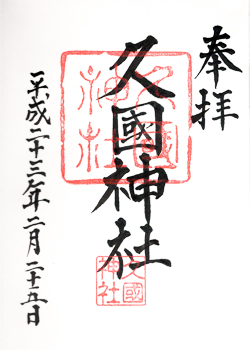 奉拝
久國神社
久國神社
久國神社
平成二十三年二月二十五日